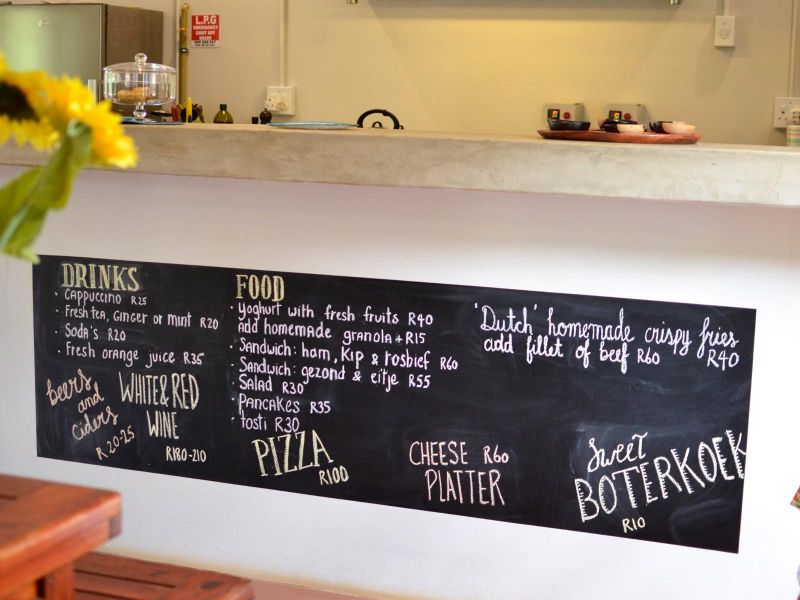 L.P.G
EMERGENCY
SHUT OFF
VALVE
DRINKS
• Cappuccino R25
• Fresh tea, Ginger or mint R20
• Soda's R20
• Fresh orange juice R35
beers
and
ciders
R 20-25
WHITE & RED
WINE
R180-210
FOOD
• Yoghurt with fresh fruits R40
Add homemade granola + R15
• Sandwich: ham, Kip & rosbief R60
• Sandwich: gezond & eitje R55
• Salad R30
• Pancakes R35
• Tosti R30
PIZZA
R100
CHEESE R60
PLATTER
'Dutch' homemade crispy fries
R40
add fillet of beef R60
Sweet
BOTERKOEK
R10